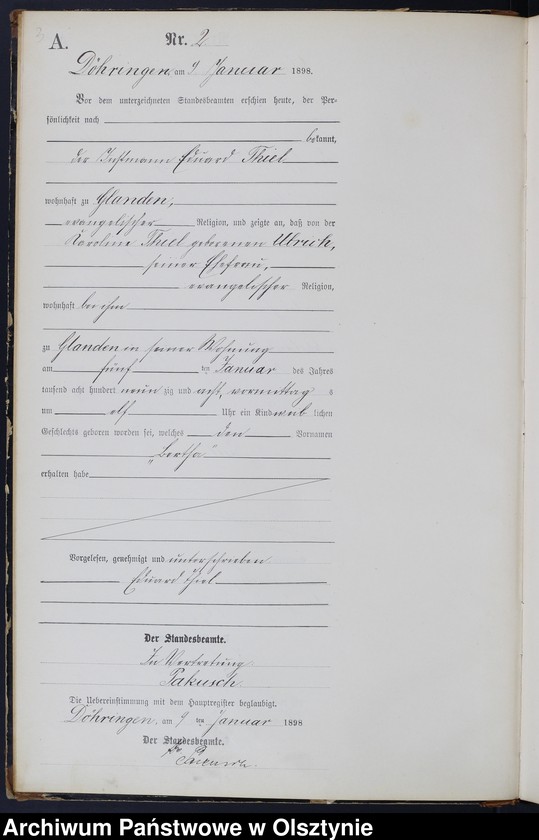 A.
Nr. 2
Döhringen, am 9 Januar 1898.
Vor dem unterzeichneten Standesbeamten erschien heute, der Per-
sönlichkeit nach
bekannt,
der Instmann Eduard Thiel
wohnhaft zu Glanden,
evangelischer Religion, und zeigte an, daß von der
Karoline Thiel geborenen Ulbrich,
seiner Ehefrau,
evangelischer Religion,
wohnhaft bei ihm
zu Glanden in seiner Wohnung
am fünf ten Januar des Jahres
tausend acht hundert neun zig und acht, vormittag s
um elf Uhr ein Kind weib lichen
Geschlechts geboren worden sei, welches den Vornamen
„Bertha"
erhalten habe
Vorgelesen, genehmigt und unterschrieben
Eduard Thiel
Der Standesbeamte.
In Vertretung
Pakusch
Die Uebereinstimmung mit dem Hauptregister beglaubigt.
Döhringen, am 9 ten Januar 1898
Der Standesbeamte.
Pakusch.
Archiwum Państwowe w Olsztynie